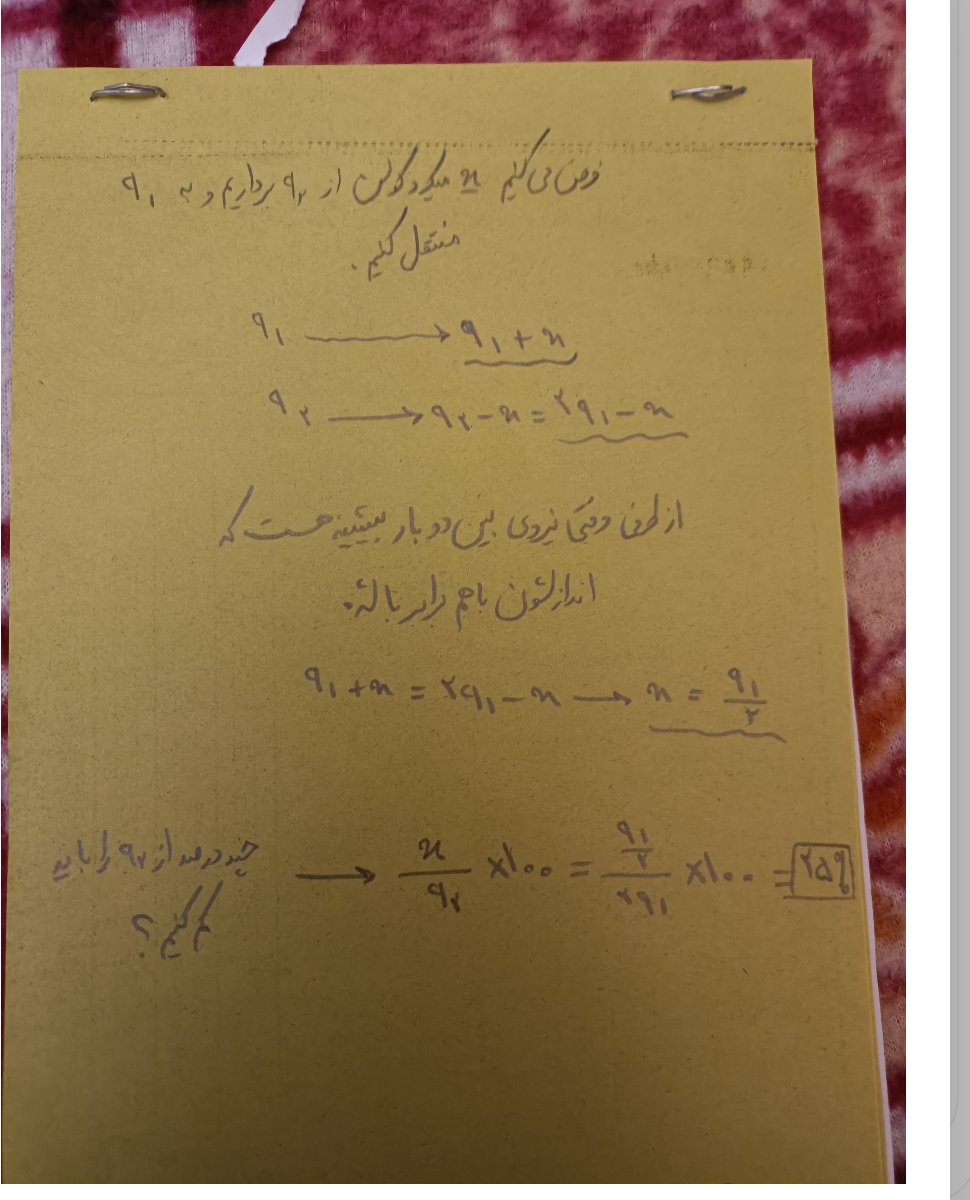 فرض می کنیم x میکروکولن از q₂ برداریم و به q₁
منتقل کنیم.
q₁ ⟶ q₁ + x
q₂ ⟶ q₂ - x = ۲q₁ - x
از طرفی وقتی نیروی بین دو بار بیشینه هست که
اندازشون باهم برابر باشه.
q₁ + x = ۲q₁ - x ⟶ x = q₁/۲
چند درصد از q₂ را باید کم کنیم؟ ⟶ x/q₂ × ۱۰۰ = (q₁/۲)/(۲q₁) × ۱۰۰ = ۲۵%